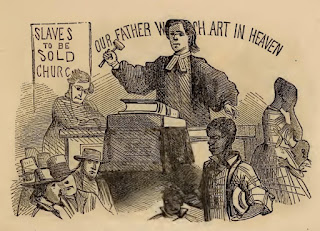 SLAVES
TO BE
SOLD
CHURC
OUR FATHER W CH ART IN HEAVEN